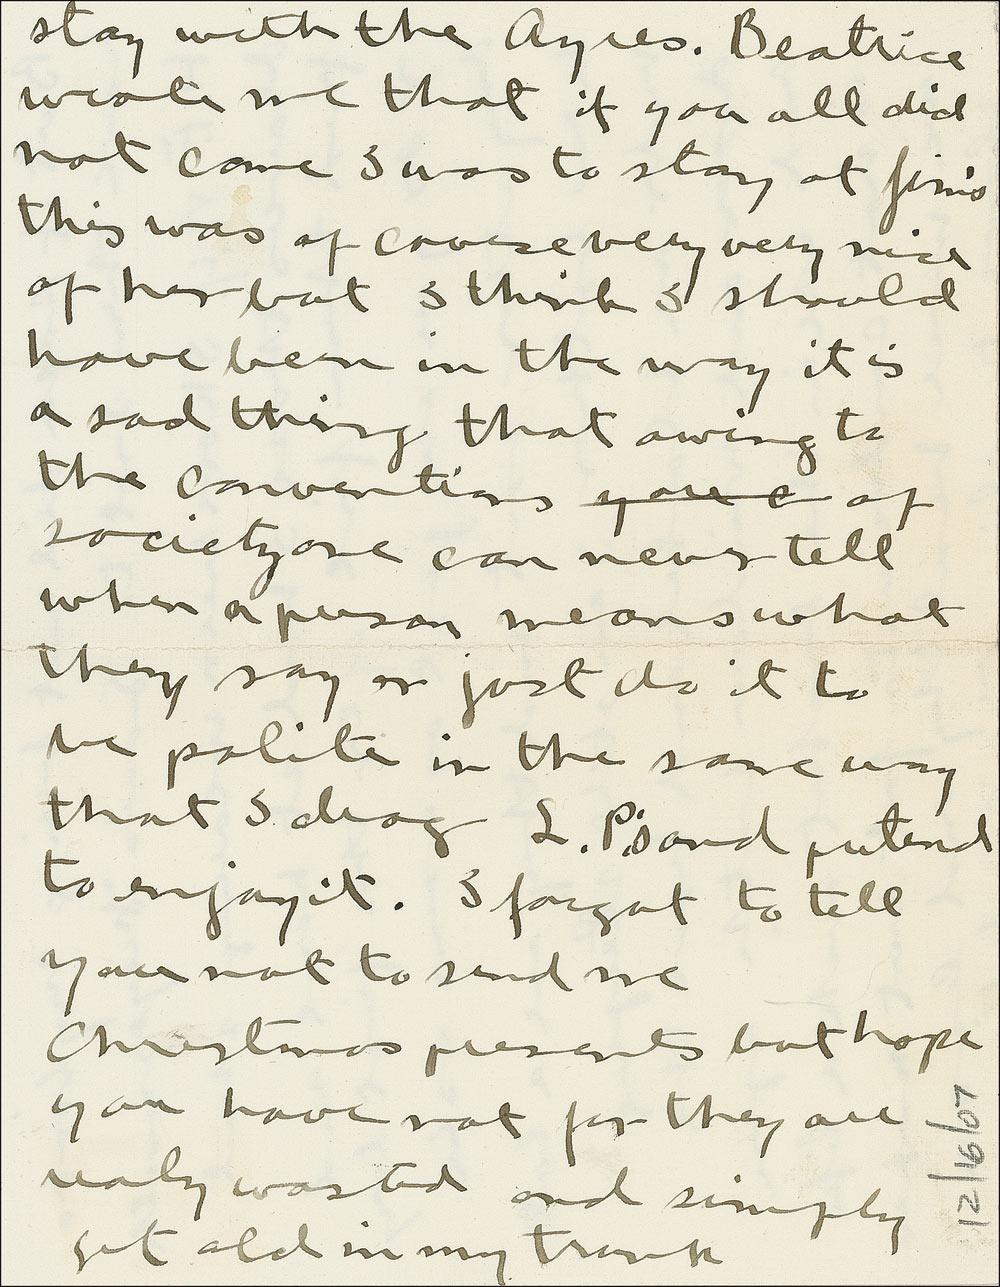 stay with the Ayres. Beatrice
wrote me that if you all did
not come I was to stay at Jim's
this was of course very very nice
of her but I think I should
have been in the way it is
a sad thing that owing to
the conventions of
society one can never tell
when a person means what
they say or just do it to
be polite in the same way
that I drag L.P.'s and pretend
to enjoy it. I forgot to tell
you not to send me
Christmas presents but hope
you have not for they are
realy wasted and simply
get old in my trunk
12/16/07